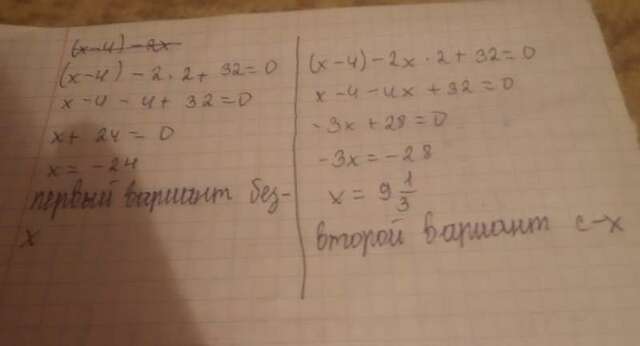 (x-4) - 2x
(x-4) - 2 · 2 + 32 = 0
x - 4 - 4 + 32 = 0
x + 24 = 0
x = -24
первый вариант без-
x
(x-4) - 2x · 2 + 32 = 0
x - 4 - 4x + 32 = 0
-3x + 28 = 0
-3x = -28
x = 9 1/3
второй вариант с-x